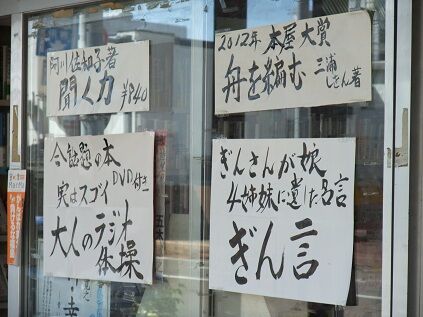 阿川佐和子著
聞く力
¥840
2012年 本屋大賞
舟を編む
三浦
しをん著
今話題の本
DVD付き
実はスゴイ
大人のラジオ
体操
ぎんさんが娘
4姉妹に遺した名言
ぎん言